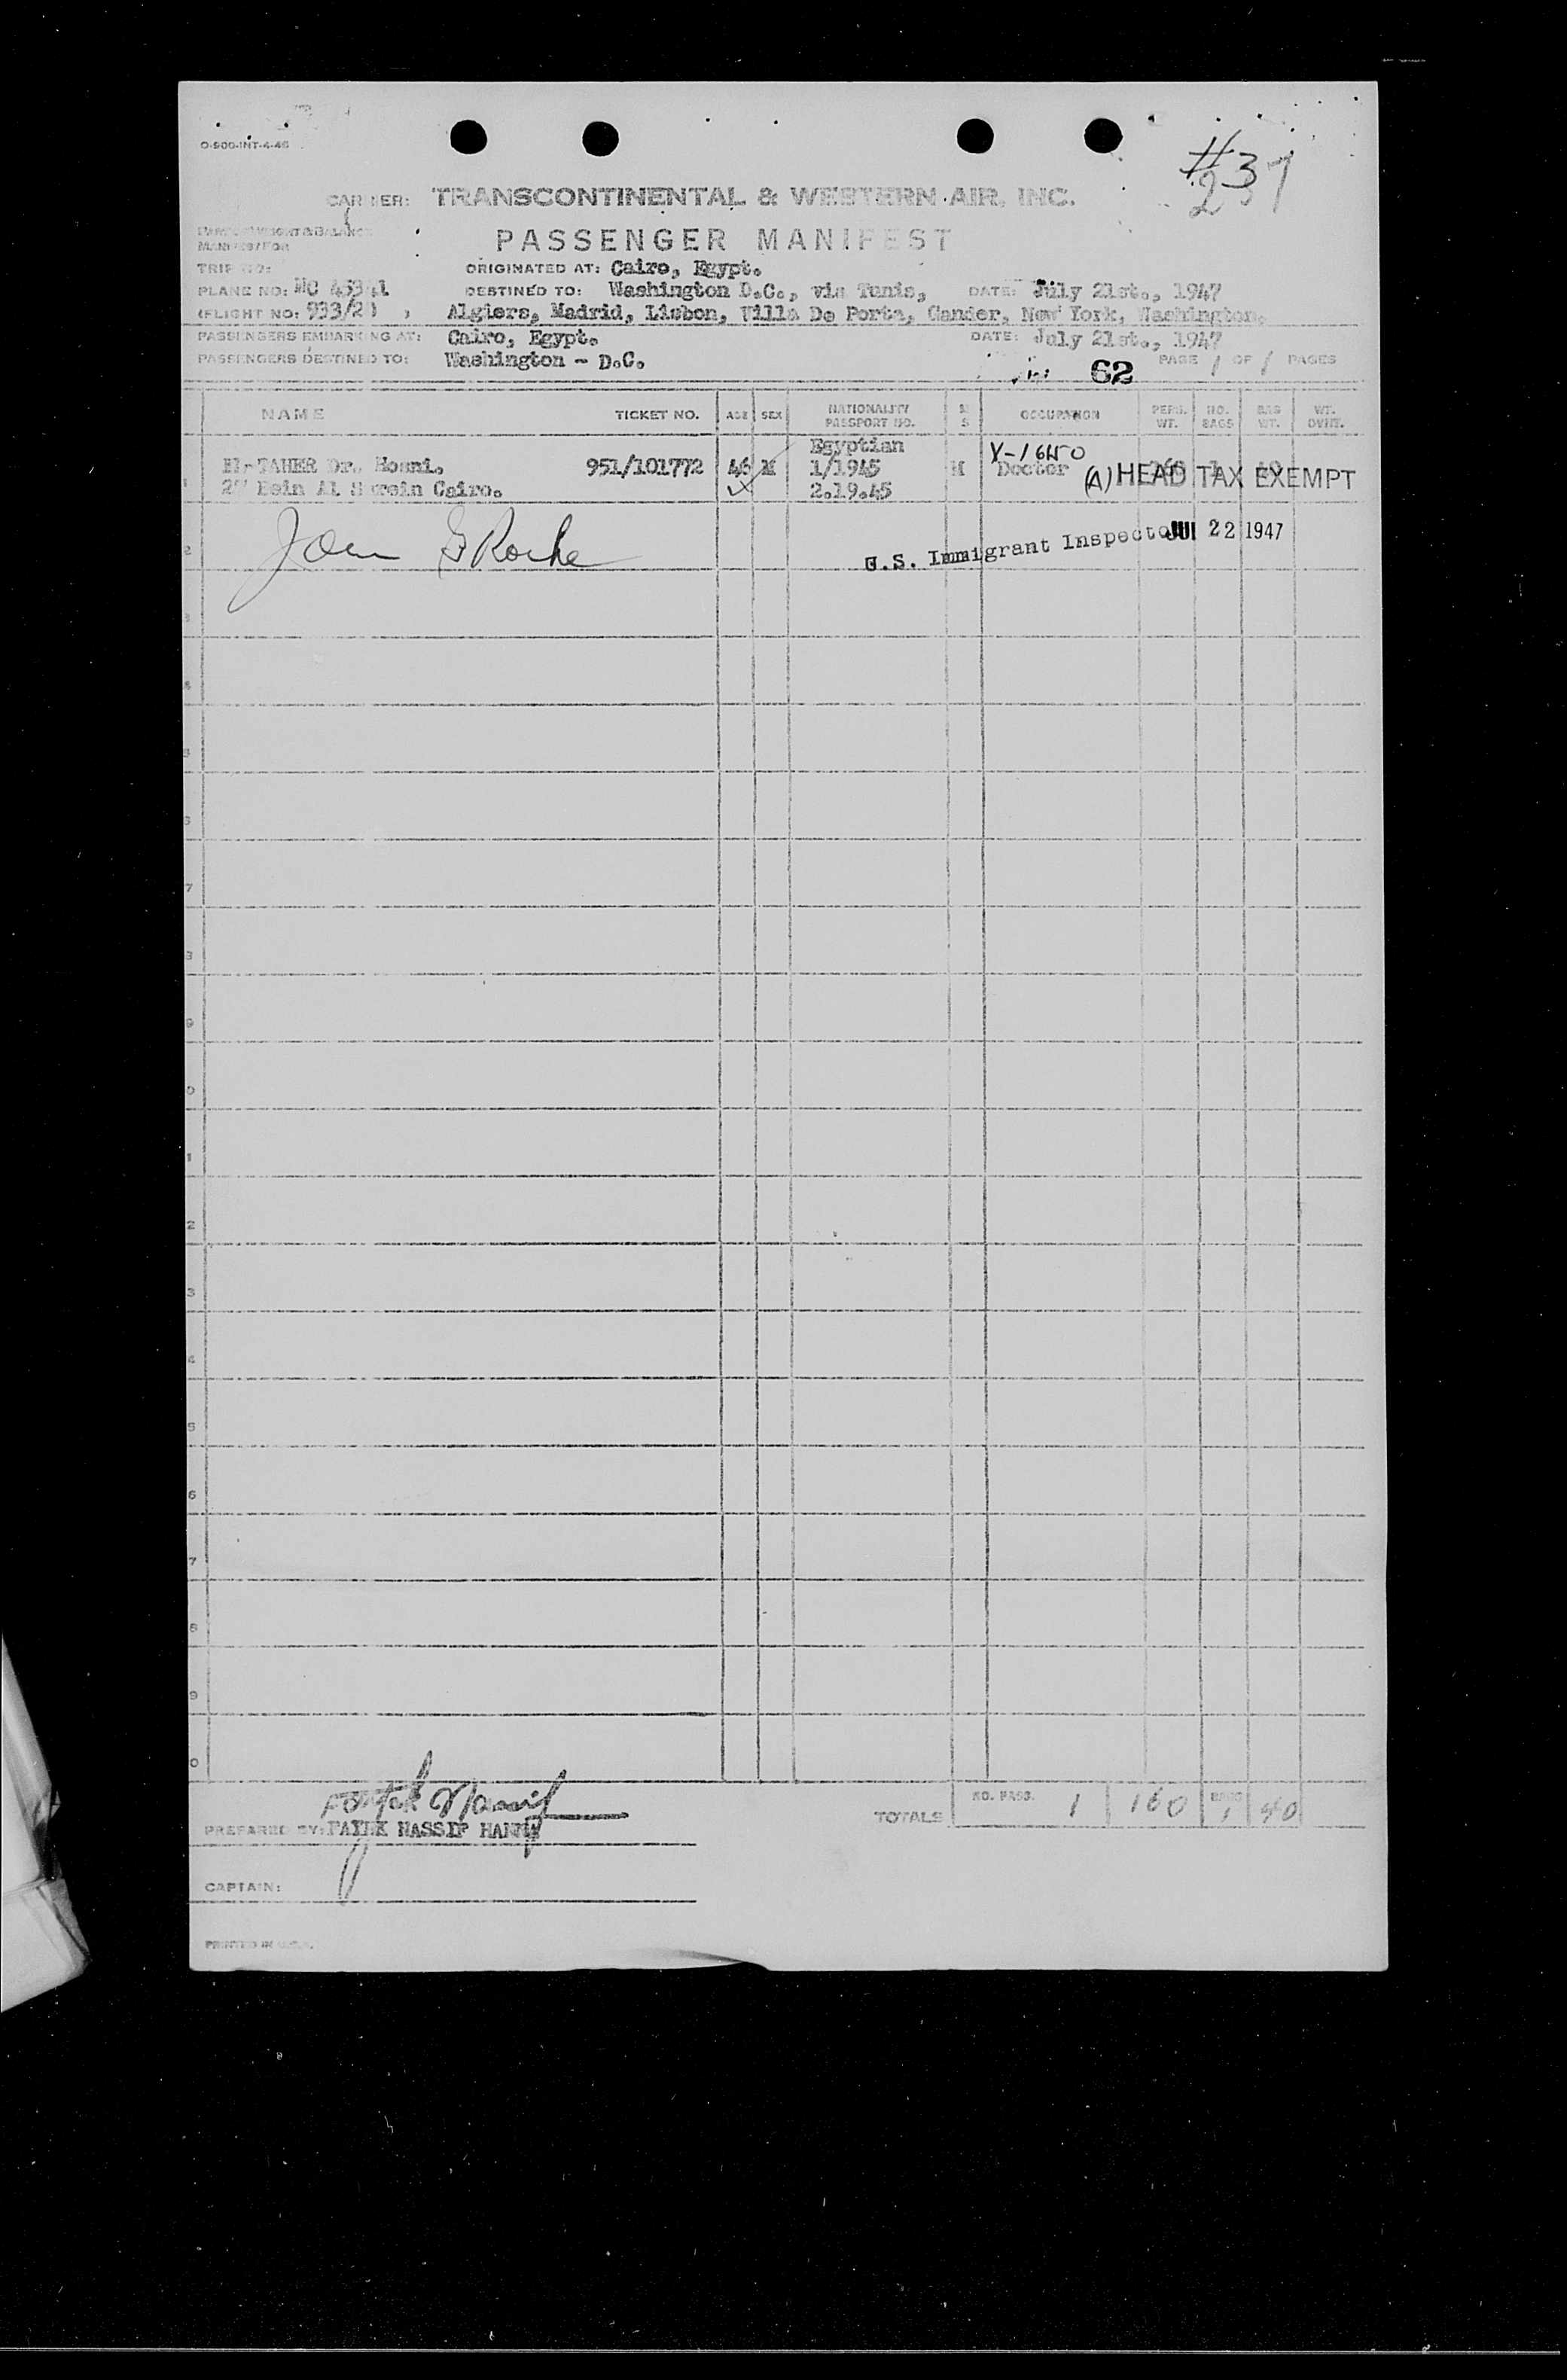 O-900-INT-4-46
#3
237
CARRIER: TRANSCONTINENTAL & WESTERN AIR, INC.
PASSENGER MANIFEST
TRIP NO: ORIGINATED AT: Cairo, Egypt.
PLANE NO: DESTINED TO: Washington D.C., via Tunis, DATE: July 21st., 1947
(FLIGHT NO: Algiers, Madrid, Lisbon, Villa De Porta, Gander, New York, Washington.
PASSENGERS EMBARKING AT: Cairo, Egypt. DATE: July 21st., 1947
PASSENGERS DESTINED TO: Washington - D.C. 62 PAGE 1 OF 1 PAGES
NAME TICKET NO. AGE SEX NATIONALITY PASSPORT NO. M S OCCUPATION PERS. WT. NO. BAGS BAG WT. WT. OVHT.
Egyptian V-1645O
El-TAHER Dr. Hosni. 951/101772 46 M 1/1945 M Doctor (A) HEAD TAX EXEMPT
Cairo. 2.19.45
U.S. Immigrant Inspector JUL 22 1947
TOTALS NO. PASS. 1 160 BAGS 1 40
PREPARED BY: HASSIF
CAPTAIN:
PRINTED IN U.S.A.